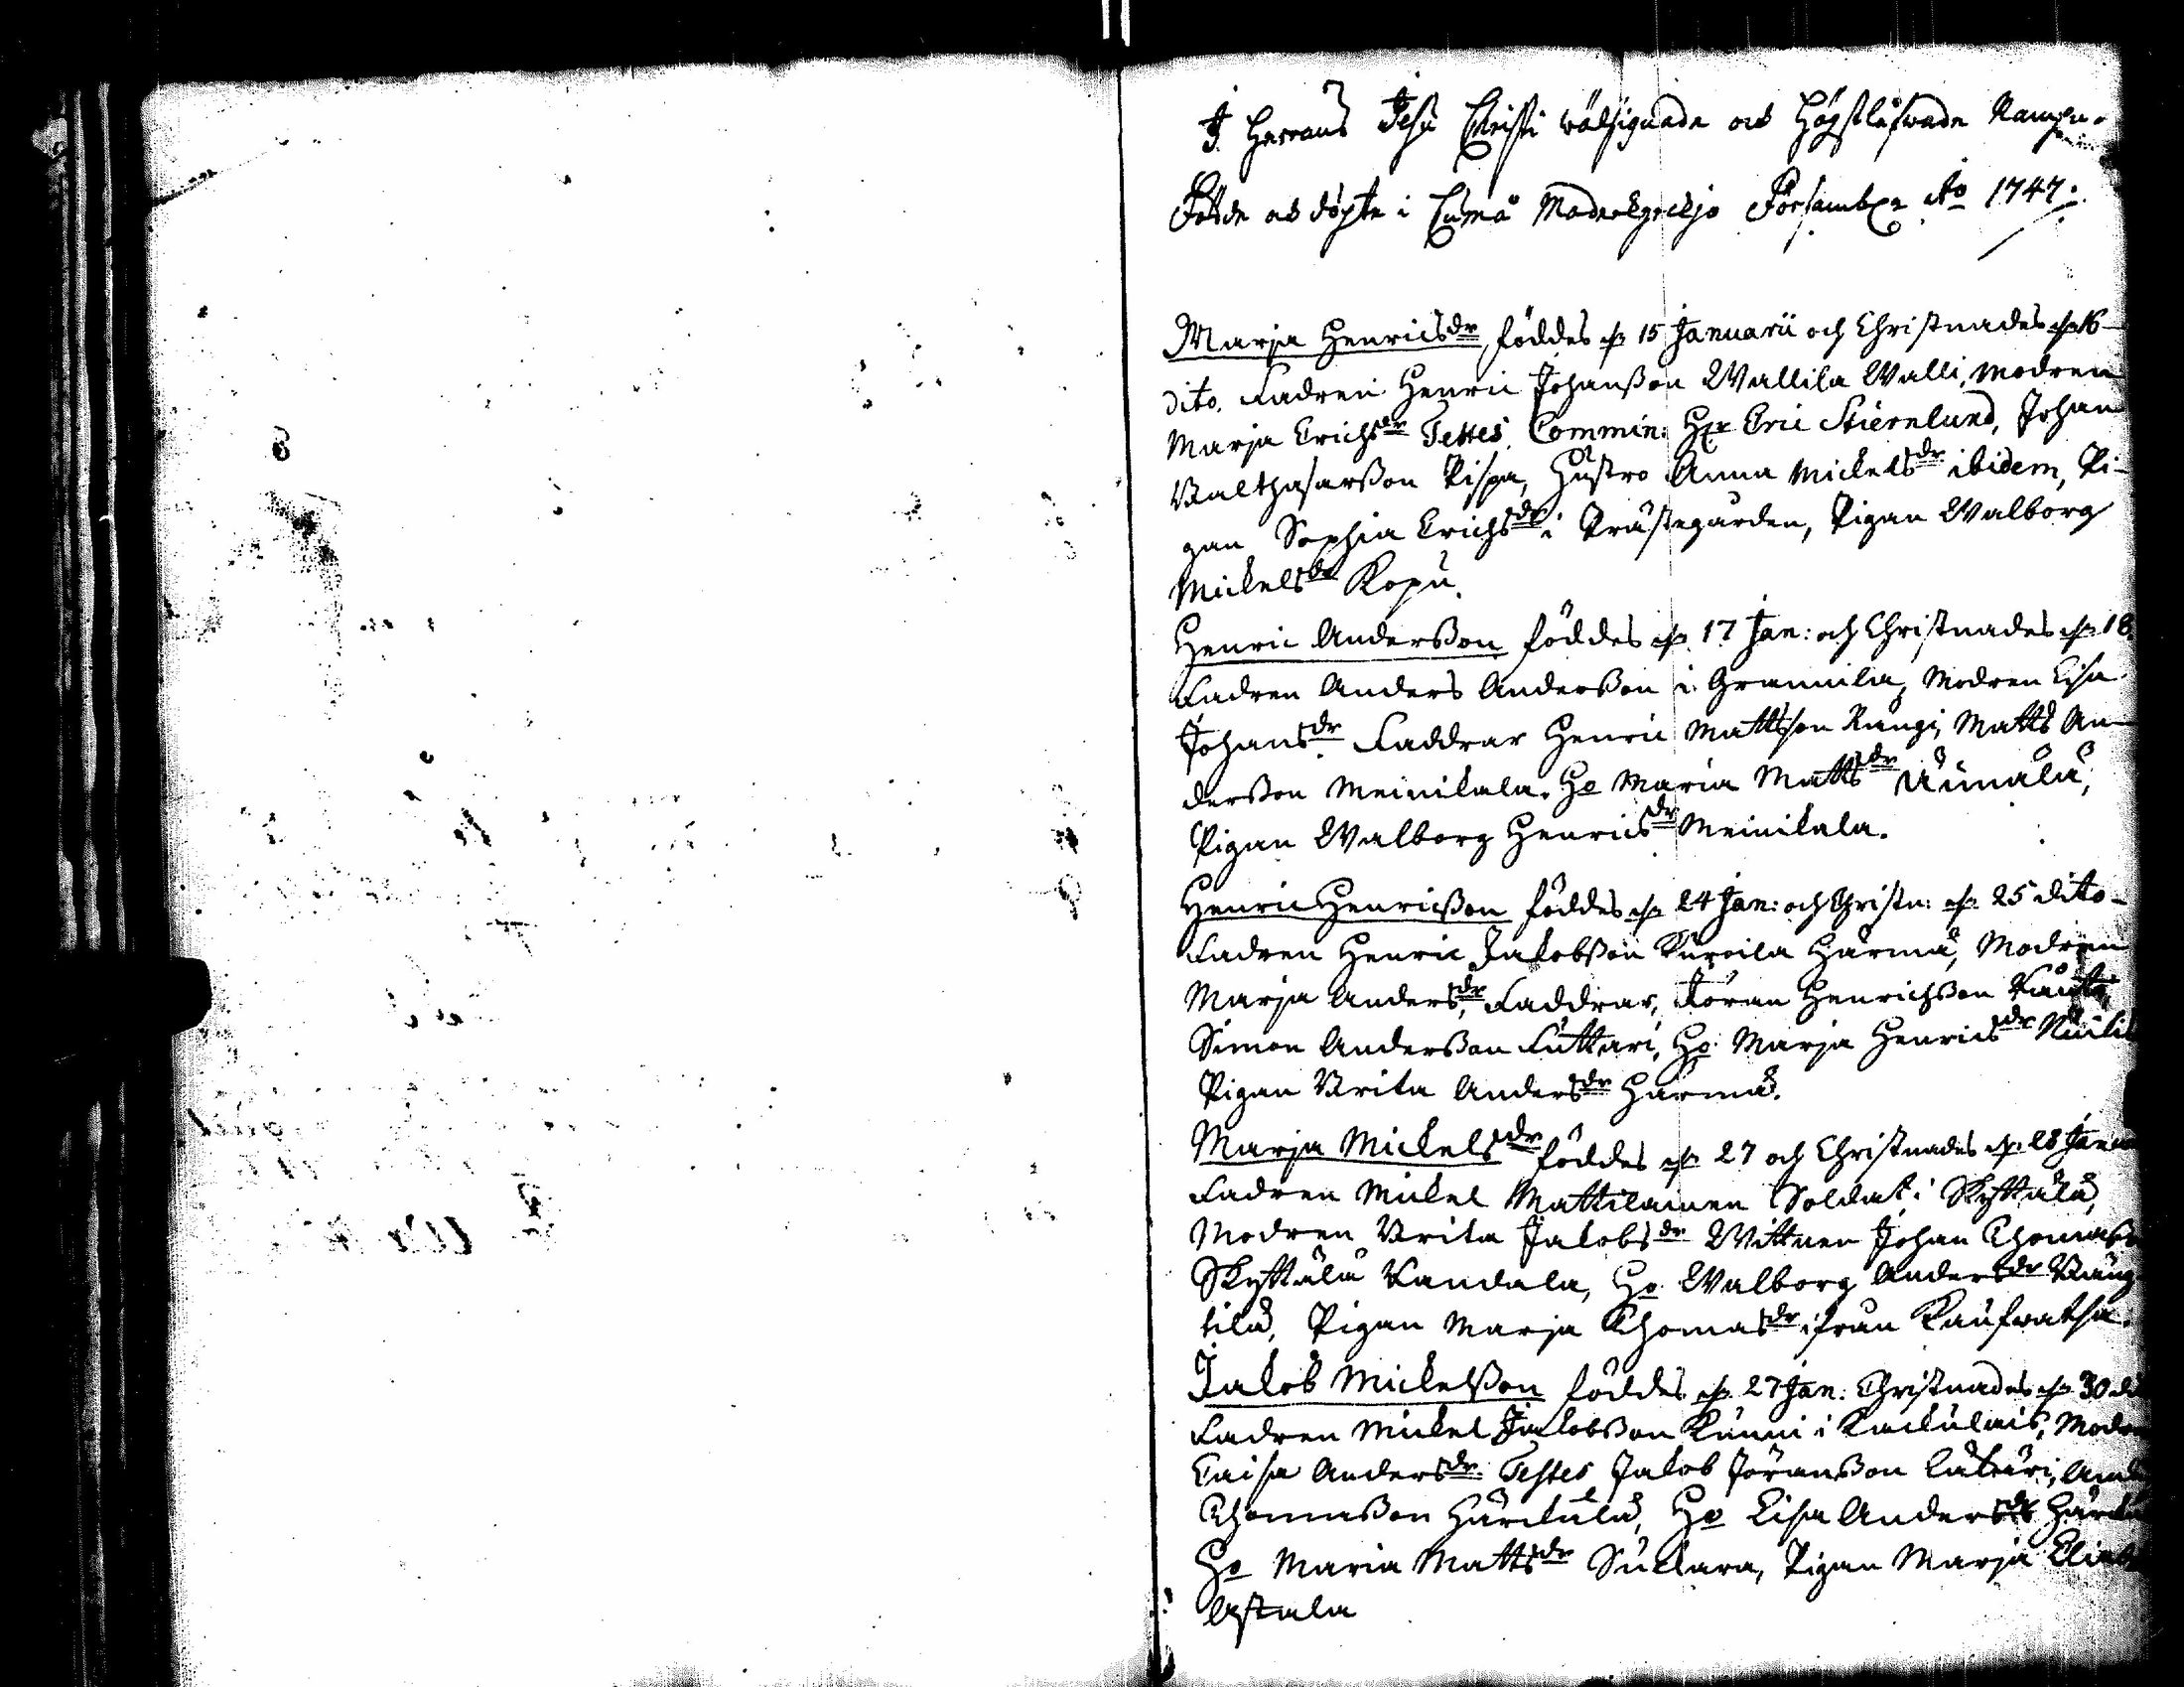 I Herrans Jesu Christi wälsignade och Högstlåfwade Nampn.
Födde och döpte i Eumå Moderkyrckjo Försambl: Ao 1747:
Marja Henricsdr, föddes d. 15 Januarii och Christnades d. 16
dito. Fadren Henric Johanßon Wallila Walli, modren
Marja Erichsdr Testes, Commin: Hr Eric Stiernlund, Johan
Balthasarßon Pispa, Hustro Anna Mickelsdr ibidem, Pi-
gan Sophia Erichsdr i Prästegården, Pigan Walborg
Mickelsdr Kopu.
Henric Anderßon föddes d. 17 Jan: och Christnades d. 18.
Fadren Anders Anderßon i Grannila, Modren Lisa
Johansdr. Faddrar Henric Mattsson Rungi, Matts An-
derßon Meinikala. Ho Maria Mattsdr Uunälä,
Pigan Walborg Henricsdr Meinikala.
Henric Henricßon föddes d. 24 Jan: och Christn: d. 25 dito
Fadren Henric Jakobßon Kuroila Härmä, Modren
Marja Andersdr, Faddrar, Jöran Henrichßon
Simon Anderßon Luttari, Ho Marja Henricsdr
Pigan Brita Andersdr Härmä.
Marja Mickelsdr föddes d. 27 och Christnades d. 28 Janu
Fadren Mickel Mattilainen Soldat i Skyttälä,
Modren Brita Jakobsdr Wittnen Johan Thomaßo
Skyttälä Kandala, Ho Walborg Andersdr
tilä, Pigan Marja Thomasdr ifrån Kaufwatsa.
Jakob Mickelßon föddes d. 27 Jan: Christnades d. 30 di
Fadren Mickel Jakobßon Kunni i Kackulais, Modr
Caisa Andersdr. Testes Jakob Jöranßon
Thomaßon Härckälä, Ho Lisa Andersdr
Ho Maria Mattsdr Suckara, Pigan Marja